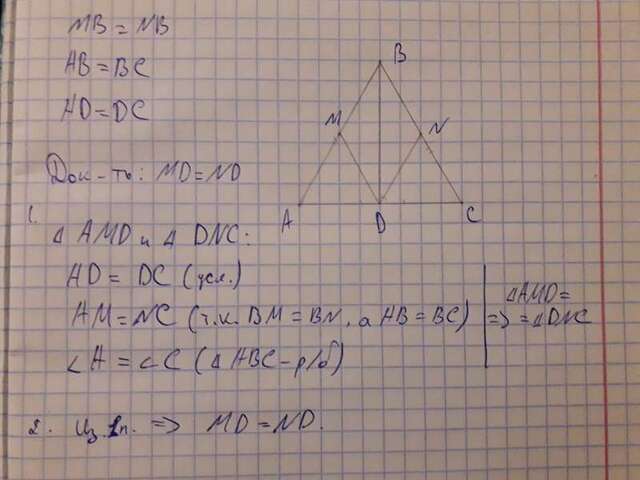 MB = NB
AB = BC
AD = DC
Док-ть: MD = ND
B
M
N
A
D
C
1.
△ AMD и △ DNC:
AD = DC (усл.)
AM = NC (т.к. BM = BN, а AB = BC)
∠A = ∠C (△ ABC - р/б)
△AMD =
=> = △DNC
2. Из 1п. => MD = ND.